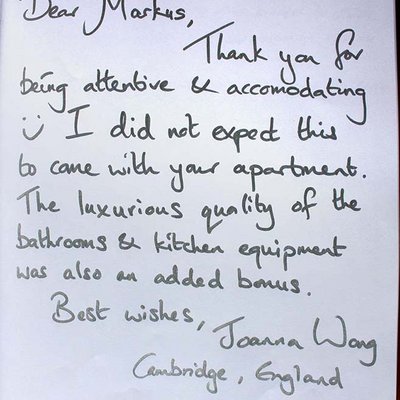 Dear Markus,
Thank you for
being attentive & accomodating
ت I did not expect this
to come with your apartment.
The luxurious quality of the
bathrooms & kitchen equipment
was also an added bonus.
Best wishes,
Joanna Wong
Cambridge, England